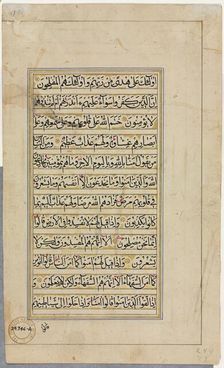 اولئك على هدى من ربهم واولئك هم المفلحون
ان الذين كفروا سواء عليهم ءانذرتهم ام لم تنذرهم
لا يؤمنون ختم الله على قلوبهم وعلى سمعهم وعلى
ابصارهم غشاوة ولهم عذاب عظيم ومن الناس
من يقول امنا بالله وباليوم الاخر وما هم بمؤمنين يخادعون
الله والذين امنوا وما يخدعون الا انفسهم وما يشعرون
في قلوبهم مرض فزادهم الله مرضا ولهم عذاب اليم بما
كانوا يكذبون واذا قيل لهم لا تفسدوا في الارض قالوا
انما نحن مصلحون الا انهم هم المفسدون ولكن لا
يشعرون واذا قيل لهم امنوا كما امن الناس قالوا انؤمن
كما امن السفهاء الا انهم هم السفهاء ولكن لا يعلمون
واذا لقوا الذين امنوا قالوا امنا واذا خلوا الى شياطينهم